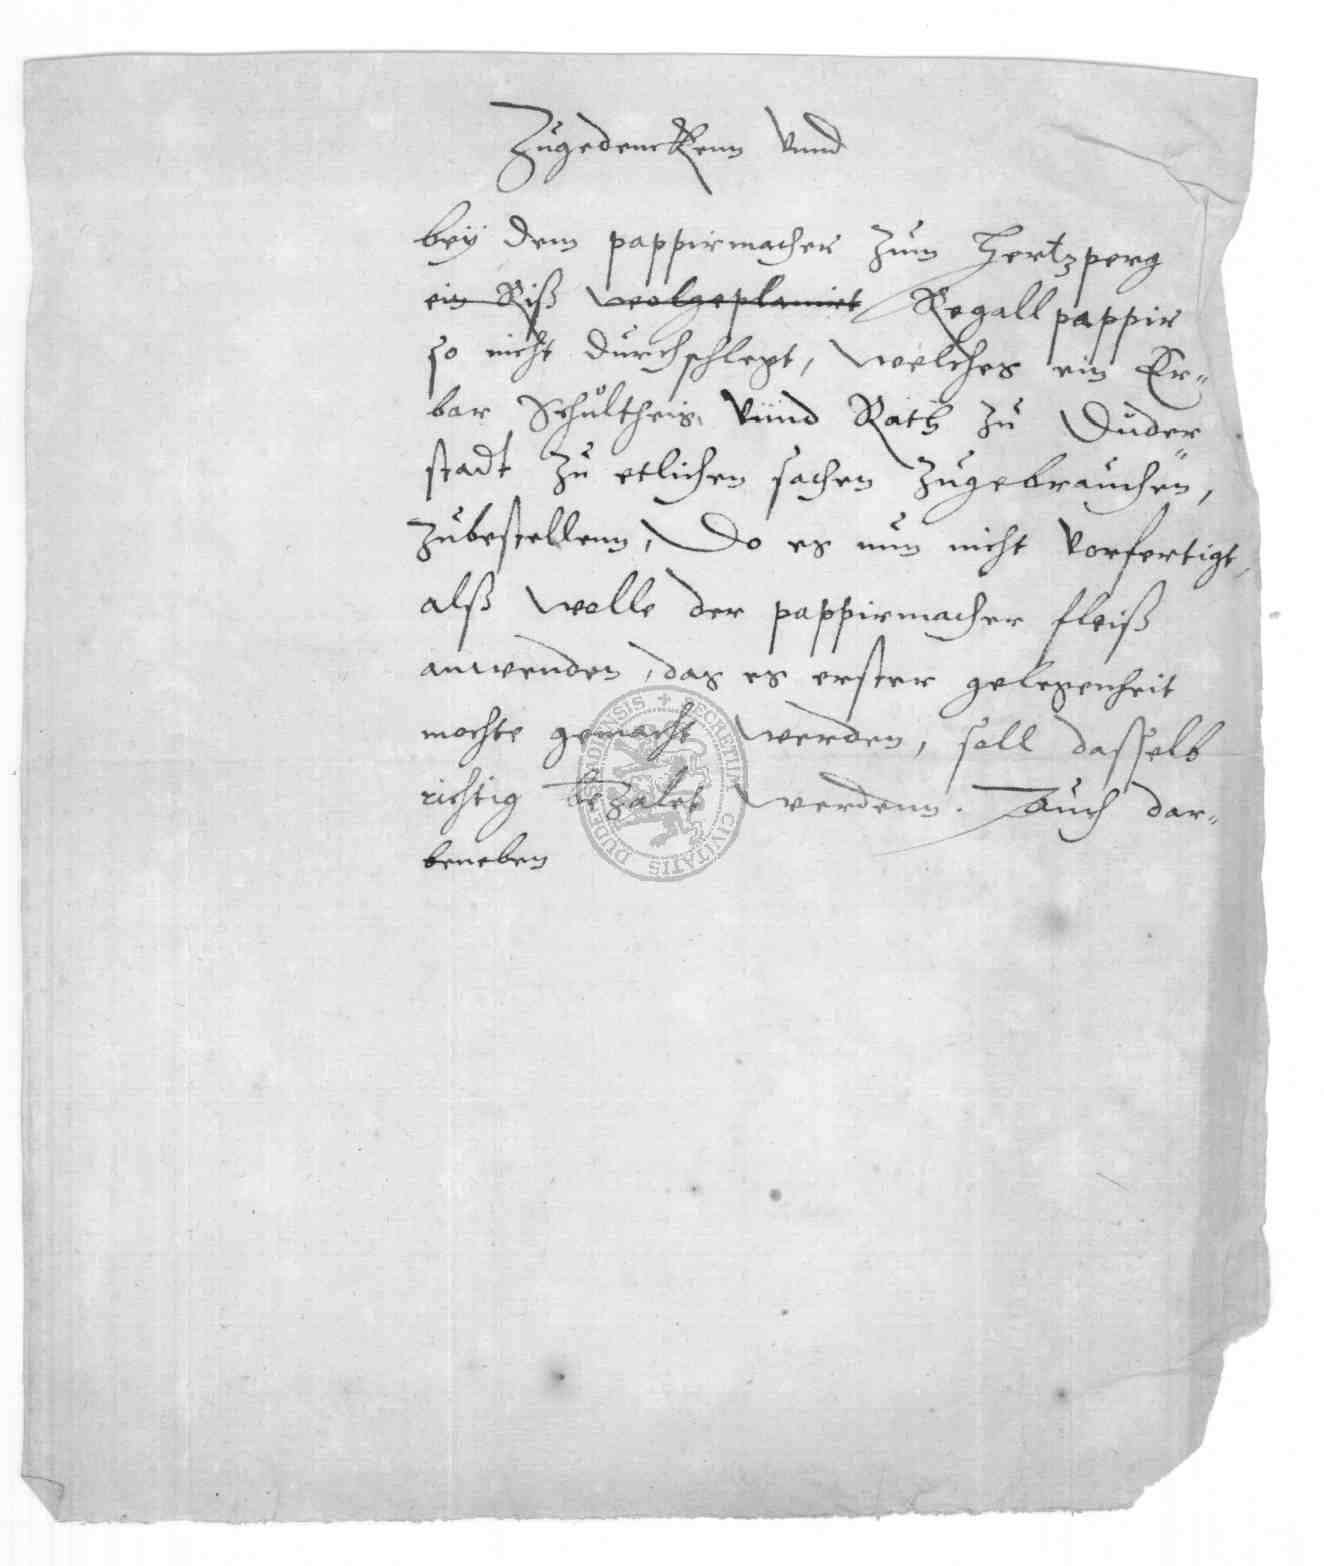 Zugedenckenn Vnnd
beÿ dem pappirmacher zum Hertzperg
ein Riß wolgeplanirt Regall pappir
so nicht durchschlegt, welches ein Er=
bar Schultheis, Vnnd Rath zu Duder=
stadt zu etlichen sachen zugebrauchen,
zubestellenn, Do es nun nicht Vorfertigt,
alß wolle der pappirmacher fleiß
anwenden, das es erster gelegenheit
mochte gemacht werden, soll dasselb
richtig bezalet werdenn. Auch dar=
beneben
SECRETUM CIVITATIS DUDERSTADIENSIS